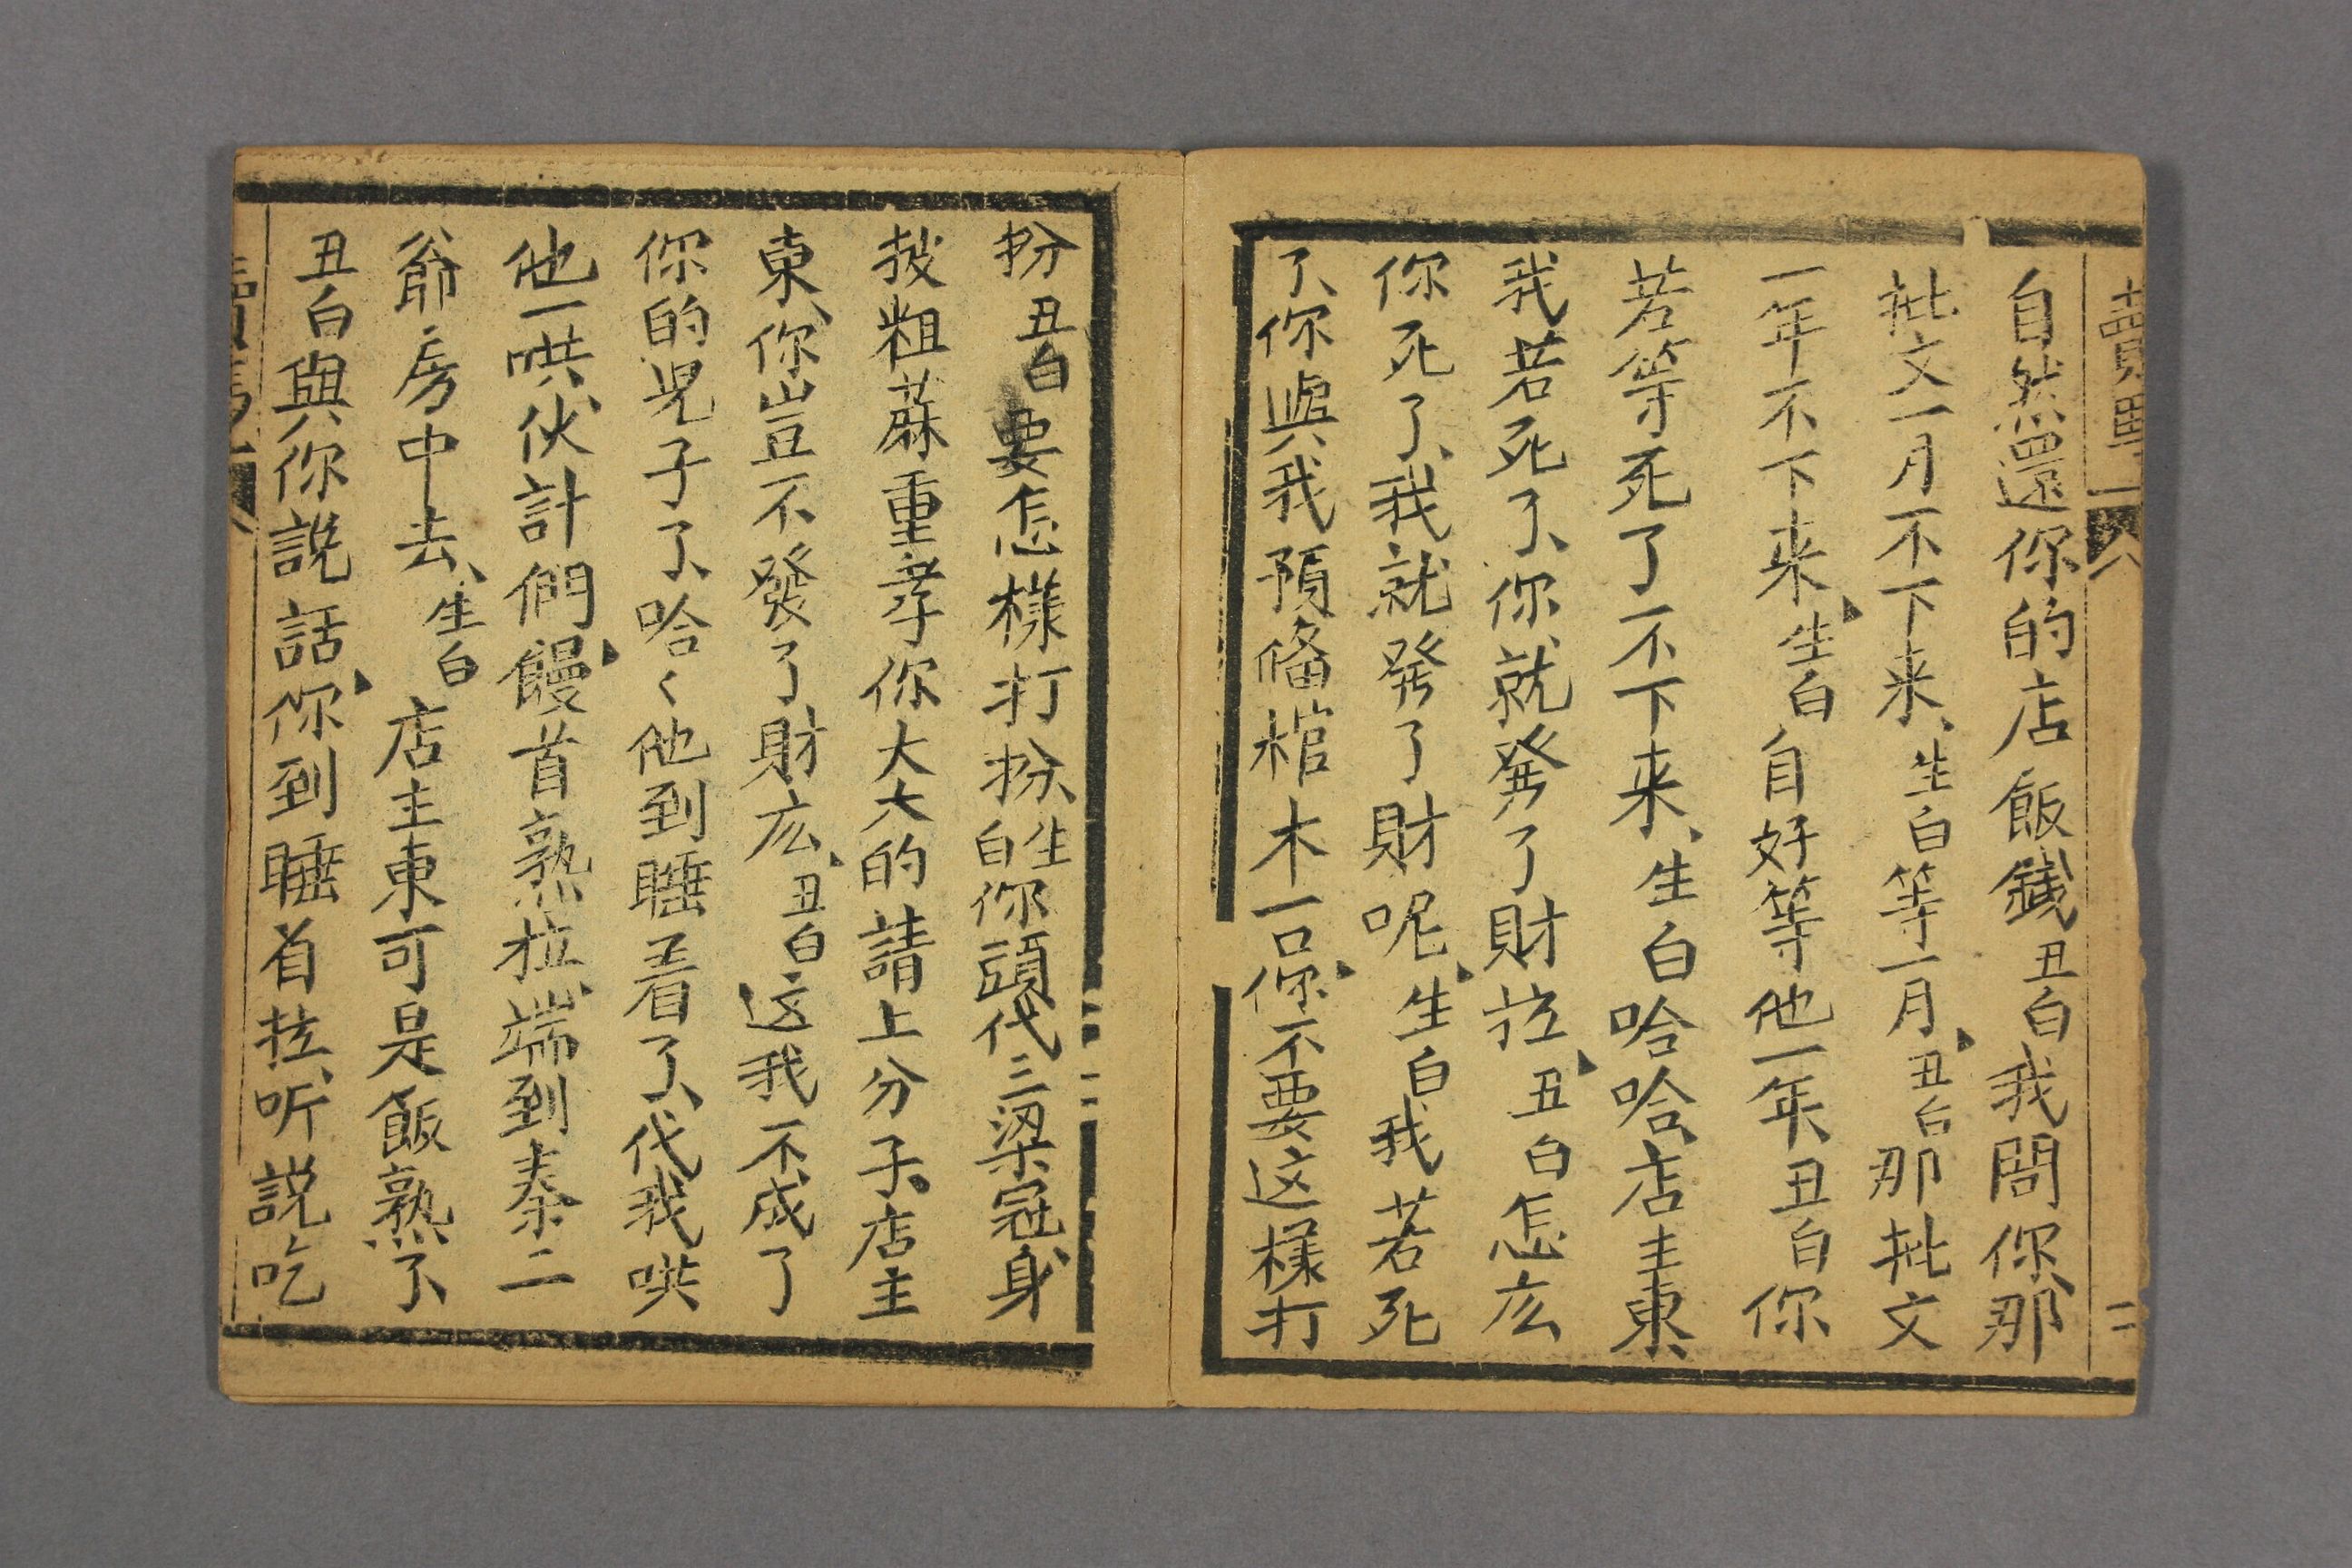 賣馬
二
自然還你的店飯錢丑白我問你、那
批文一月不下来、生白等一月丑白那批文
一年不下来生白自好等他一年、丑白你
若等死了不下来、生白哈哈、店主東、
我若死了、你就発了財拉丑白怎庅
你死了、我就発了財呢生白我若死
了、你與我預俻棺木一口你不要这樣打
扮丑白要怎樣打扮、生白你頭代三梁冠、身
披粗蔴重孝你大大的請上分子、店主
東、你豈不發了財庅、丑白这我不成了
你的児子了、哈〱他到睡着了、代我哄
他一哄、伙計們饅首熟拉、端到秦二
爺房中去、生白店主東可是飯熟了、
丑白與你説話你到睡着拉、听説吃